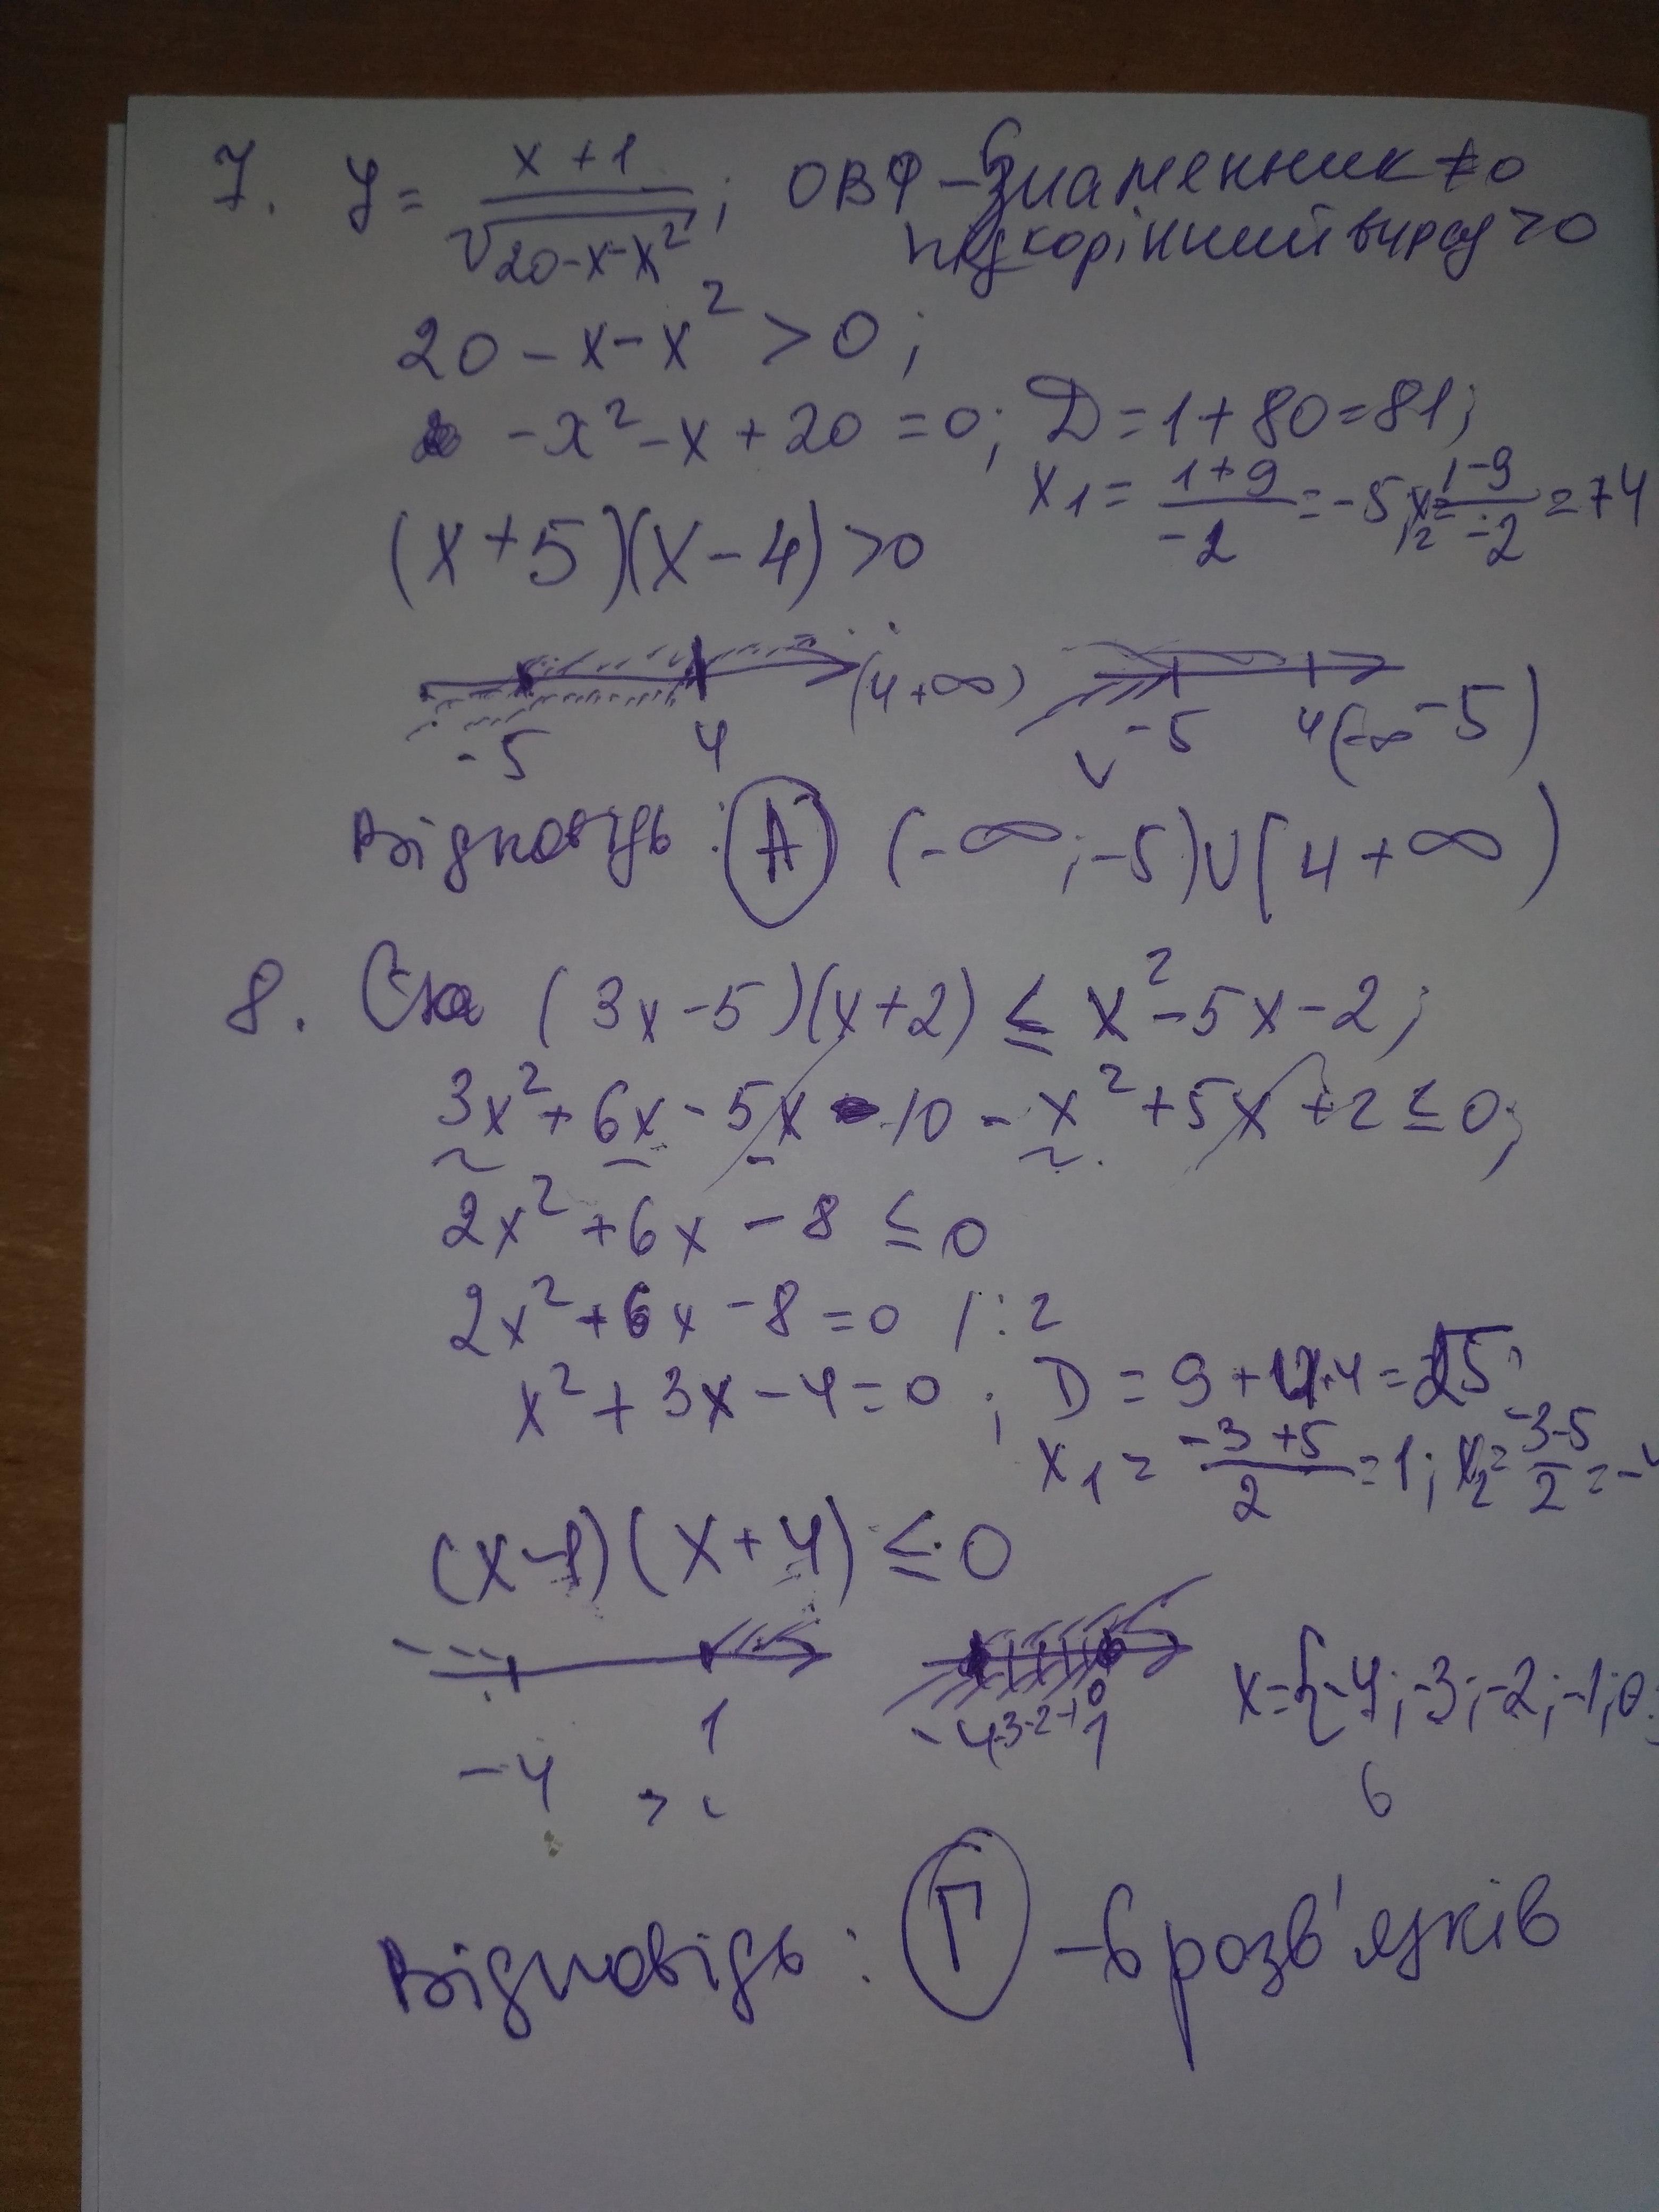 7. y = x+1 / √20-x-x²; ОВФ - Знаменник ≠ 0
підкорінний вираз > 0
20 - x - x² > 0;
-x² - x + 20 = 0; D = 1 + 80 = 81;
x₁ = 1+9 / -2 = -5, x₂ = 1-9 / -2 = +4
(x+5)(x-4) > 0
-5 4 (4 +∞) -5 4 (-∞ -5)
Відповідь: А (-∞; -5) ∪ (4 + ∞)
8. (3x-5)(x+2) ≤ x² - 5x - 2;
3x² + 6x - 5x - 10 - x² + 5x + 2 ≤ 0;
2x² + 6x - 8 ≤ 0
2x² + 6x - 8 = 0 / : 2
x² + 3x - 4 = 0; D = 9 + 4·4 = 25;
x₁ = -3+5 / 2 = 1; x₂ = -3-5 / 2 = -4
(x-1)(x+4) ≤ 0
-4 1 -4 -3 -2 -1 0 1 x = {-4; -3; -2; -1; 0;
6
Відповідь: Г - 6 розв'язків